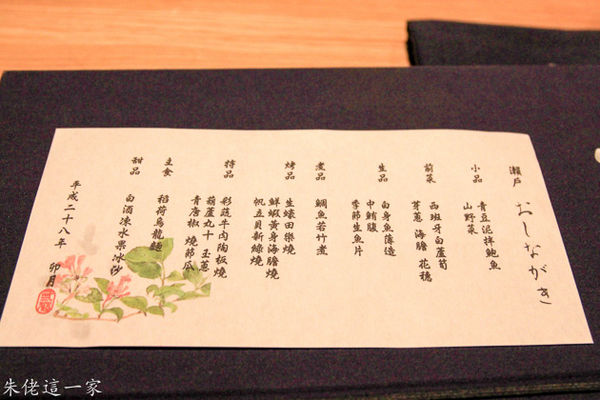 瀨戶 おしながき
小品 青豆泥拌鮑魚
山野菜
前菜 西班牙白蘆筍
芽蔥 海膽 花穗
生品 白身魚薄造
中鮪腹
季節生魚片
煮品 鯛魚若竹煮
烤品 生蠔田樂燒
鮮蝦黃身海膽燒
帆立貝新綠燒
特品 彩蔬牛肉陶板燒
葫蘆丸十 玉蔥
青唐椒 燒節瓜
主食 稻荷烏龍麵
甜品 白酒漬水果冰沙
平成二十八年 卯月
朱佬這一家